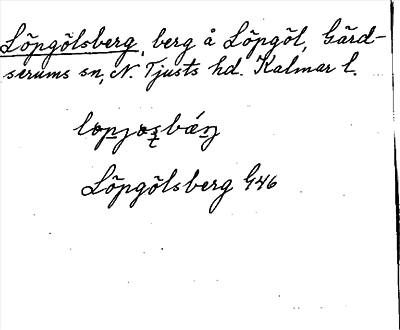 Löpgölsberg, berg å Löpgöl, Gärd-
serums sn, N. Tjusts hd. Kalmar l.
Löpgölsberg G46